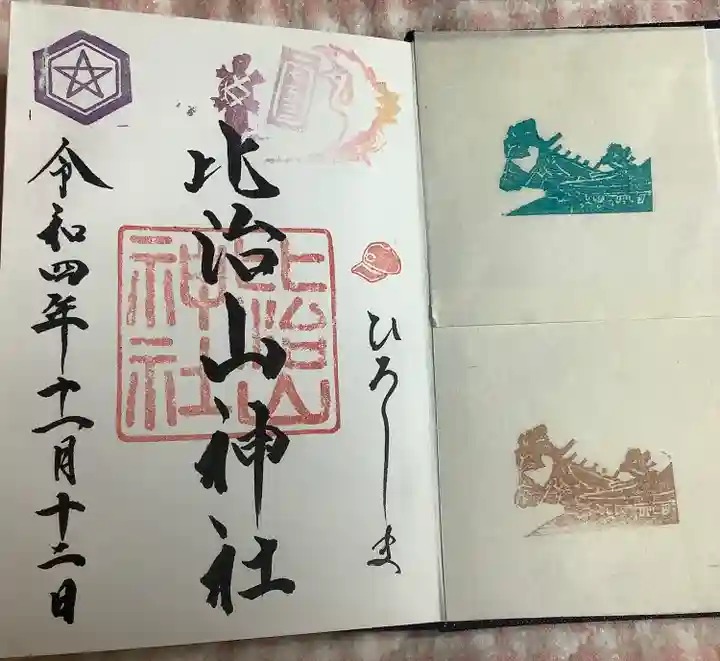 ひろしま
比治山神社
比治山
神社
令和四年十一月十二日